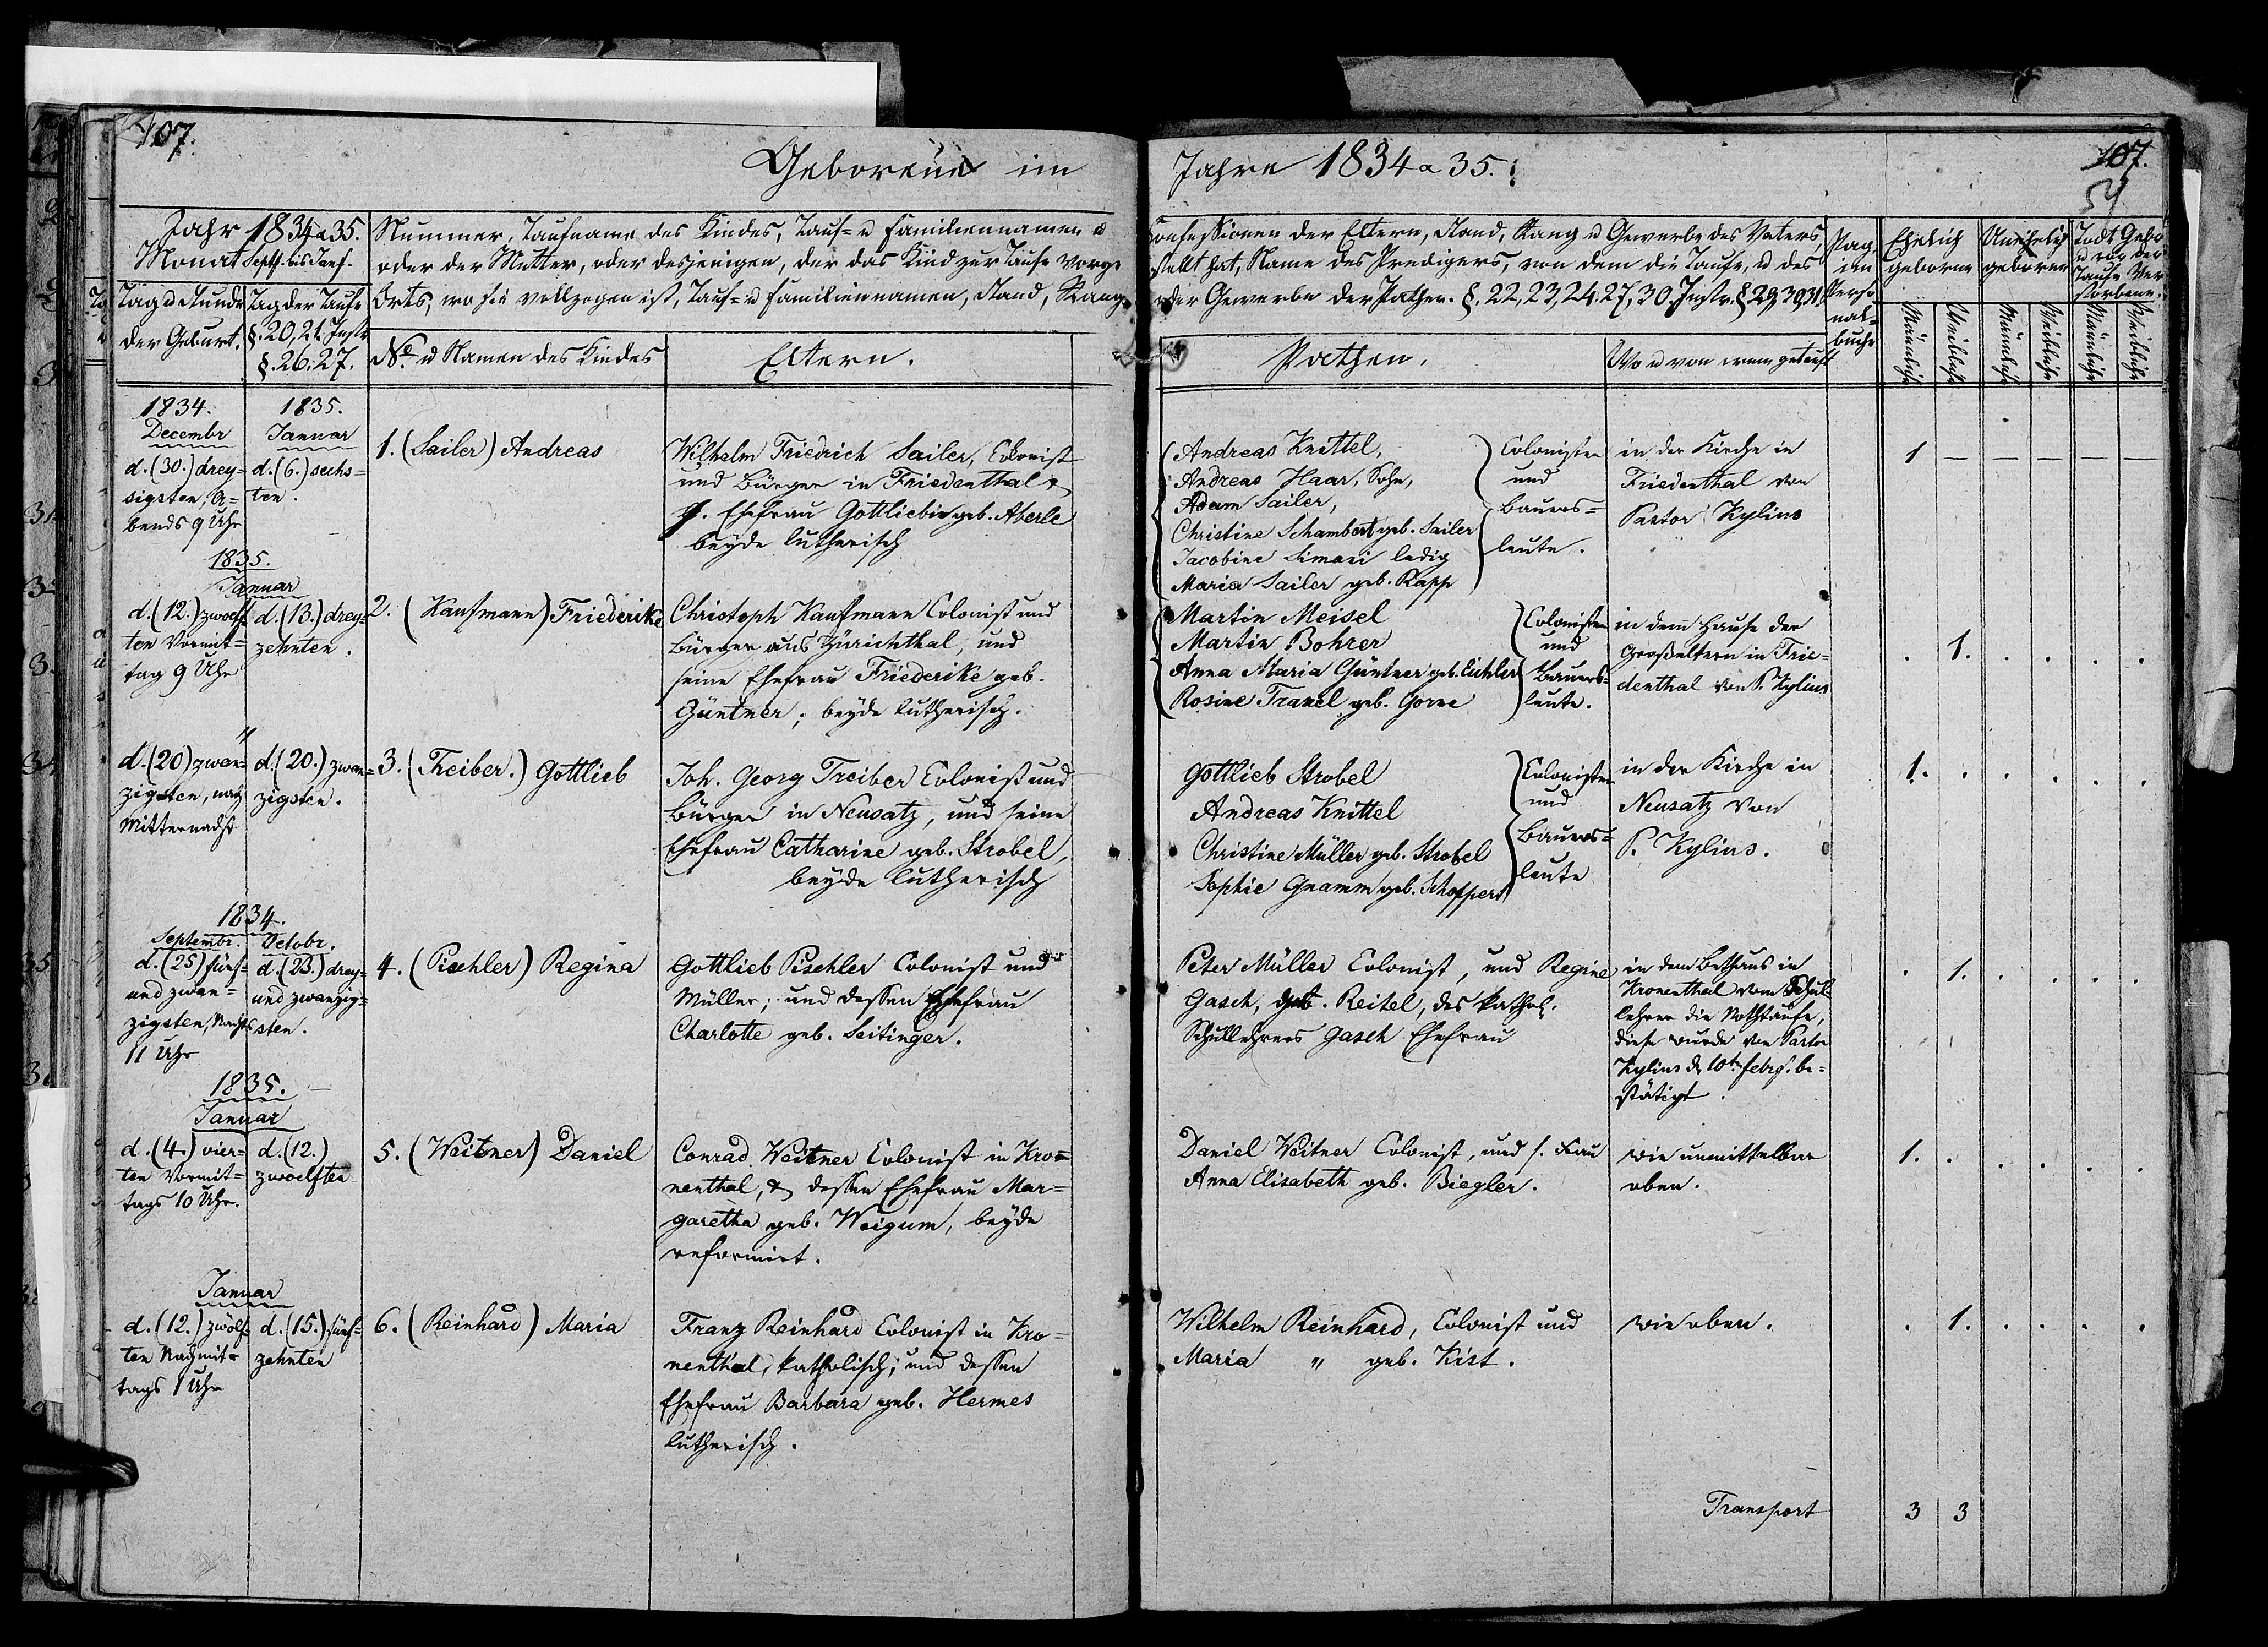 107.
Geborene im
Jahre 1834 a 35.
107.
54
Jahr 1834 a 35.
Monat Septb. bis Janr.
Tag u Stunde
der Geburt.
Tag der Taufe
§. 20, 21. Instr.
§. 26. 27.
Nummer, Taufname des Kindes, Tauf= u Familiennamen d
oder der Mutter, oder desjenigen, der das Kind zur Taufe vorge
Orts, wo sie vollzogen ist, Tauf= u Familiennamen, Stand, Rang,
No. u Namen des Kindes
Eltern.
Confessionen der Eltern, Stand, Rang u Gewerbe des Vaters,
stellt hat, Name des Predigers, von dem die Taufe, u des
oder Gewerbe der Pathen. §. 22, 23, 24, 27, 30. Instr. § 29, 30, 31.
Pathen.
Wo u von wem getauft
Pag.
im
Perso
nal=
buche
Ehelich
geborne
Unehelich
geborne
Todt Gebo
u vor der
Taufe Ver
storbene.
Männliche
Weibliche
Männliche
Weibliche
Männliche
Weibliche
1834.
Decembr
d. (30.) drey=
sigsten, A=
bends 9 Uhr
1835.
Januar
d. (6.) sechs=
ten.
1. (Sailer) Andreas
Wilhelm Friedrich Sailer, Colonist
und Bürger in Friedenthal &
s. Ehefrau Gottliebin geb. Aberle
beyde lutherisch
Andreas Knittel,
Andreas Haar, Sohn,
Adam Sailer,
Christine Schambert geb. Sailer
Jacobine Simari ledig
Maria Sailer geb. Rapp
Colonisten
und
Bauers=
leute.
in der Kirche in
Friedenthal von
Pastor Kylius
1 — — — — —
1835.
Januar
d. (12.) zwoelf=
ten Vormit=
tag 9 Uhr
d. (13.) drey=
zehnten.
2. (Kaufmann) Friederike
Christoph Kaufmann Colonist und
Bürger aus Zürichthal, und
seine Ehefrau Friederike geb.
Güntner; beyde lutherisch.
Martin Meisel
Martin Bohrer
Anna Maria Güntner geb. Eichler
Rosine Tranel geb. Gorne
Colonisten
und
Bauers=
leute.
in dem Hause der
Großeltern in Frie=
denthal von P. Kylius
. 1. . . . .
"
d. (20) zwan=
zigsten, nach
Mitternacht
d. (20.) zwan=
zigsten.
3. (Treiber.) Gottlieb
Joh. Georg Treiber Colonist und
Bürger in Neusatz, und seine
Ehefrau Catharine geb. Strobel,
beyde lutherisch
Gottlieb Strobel
Andreas Knittel
Christine Müller geb. Strobel
Sophie Gnamm geb. Schoppert
Colonisten
und
Bauers=
leute
in der Kirche in
Neusatz von
P. Kylius.
1. . . . . .
1834.
Septembr.
d. (25) fünf=
und zwan=
zigsten, Nachts
11 Uhr
Octobr.
d. (23.) drey=
und zwanzig=
sten.
4. (Pischler) Regina
Gottlieb Pischler Colonist und
Müller; und dessen Ehefrau
Charlotte geb. Seitinger.
Peter Müller Colonist, und Regine
Gasch, geb. Reitel, des kathol.
Schullehrers Gasch Ehefrau
in dem Bethaus in
Kronenthal vom Schul=
lehrer die Nothtaufe,
diese wurde von Pastor
Kylius d. 10ten Febr. be=
stätigt.
. 1. . . . .
1835.
Januar
d. (4.) vier=
ten Vormit=
tags 10 Uhr.
d. (12.)
zwoelften
5. (Weitner) Daniel
Conrad Weitner Colonist in Kro=
nenthal, & dessen Ehefrau Mar=
garetha geb. Weigum, beyde
reformirt.
Daniel Weitner Colonist, und s. Frau
Anna Elisabeth geb. Biegler.
wie unmittelbar
oben.
1. . . . . .
Januar
d. (12.) zwölf=
ten Nachmit=
tags 1 Uhr
d. (15.) fünf=
zehnten
6. (Reinhard) Maria
Franz Reinhard Colonist in Kro=
nenthal, katholisch; und dessen
Ehefrau Barbara geb. Hermes
lutherisch.
Wilhelm Reinhard, Colonist und
Maria " geb. Kist.
wie oben.
. 1. . . . .
Transport
3 3